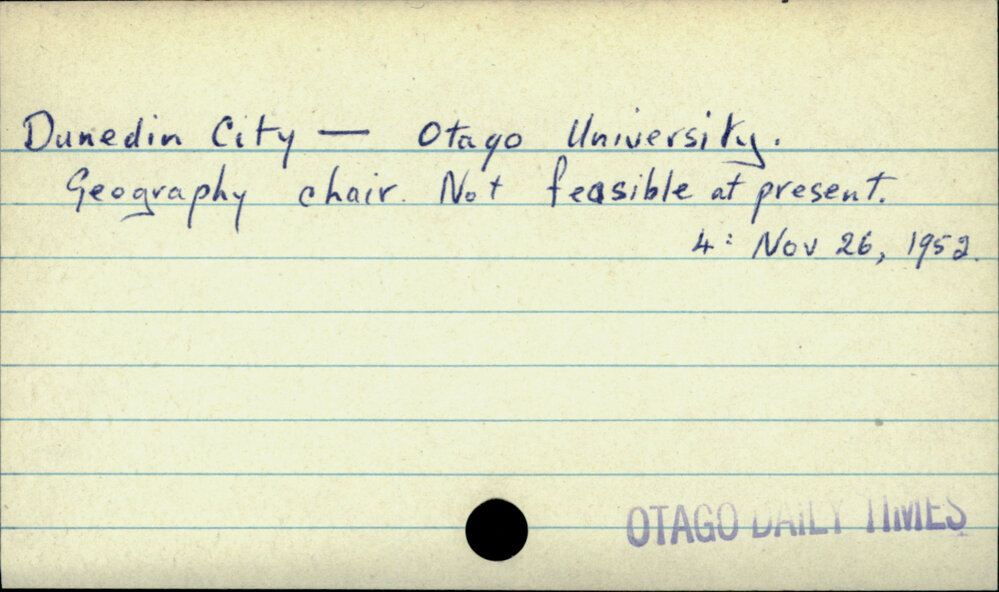 Dunedin City — Otago University.
Geography chair. Not feasible at present.
4: Nov 26, 1952.
OTAGO DAILY TIMES